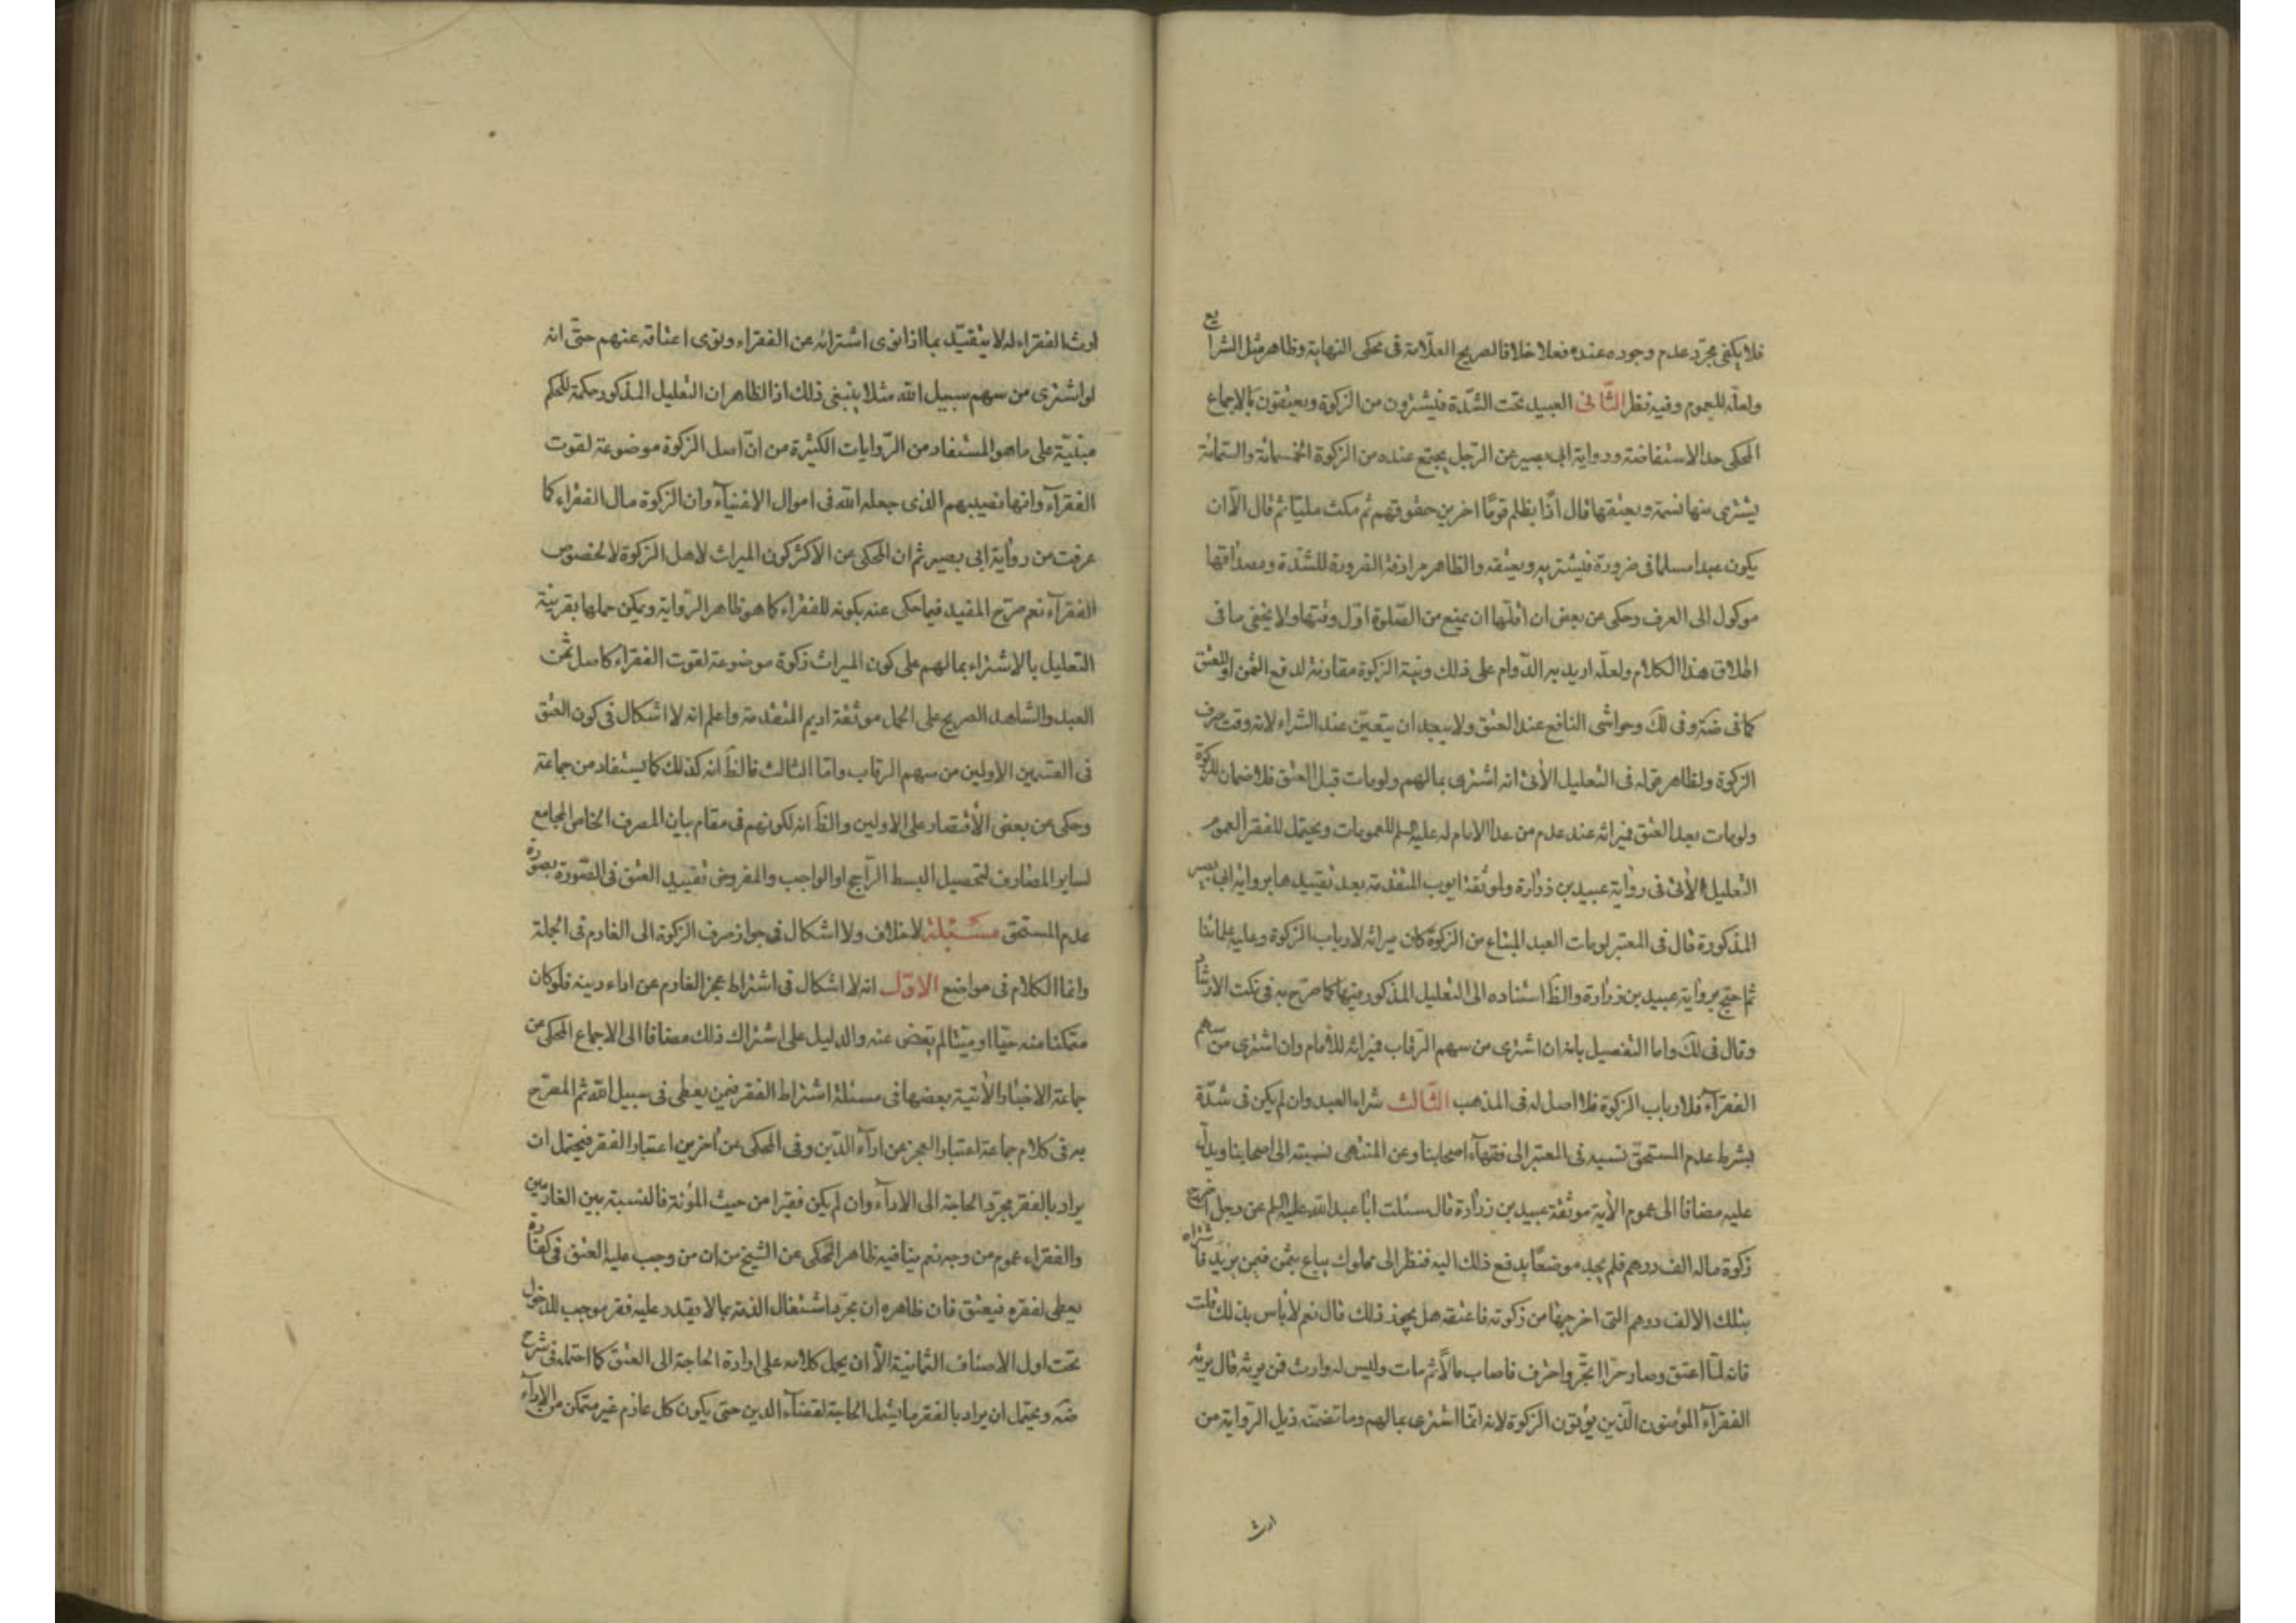 فلا يكفى مجرّد عدم وجوده عنده فعلا خلافا لصريح العلّامة فى محكى النهاية وظاهر مثل الشرايع
ولعلّه للعموم وفيه نظر الثّانى العبيد تحت الشدّة فيشترون من الزكوة ويعتقون بالاجماع
المحكى حد الاستفاضة ورواية ابى بصير عن الرجل يجتمع عنده من الزكوة الخمسمائة والستمائة
يشترى منها نسمة ويعتقها قال اذًا يظلم قومًا اخرين حقوقهم ثم مكث مليّا ثم قال الّا ان
يكون عبدا مسلما فى ضرورة فيشتريه ويعتقه والظاهر مرادفة الضرورة للشدّة ومصداقها
موكول الى العرف وحكى عن بعض ان اقلّها ان يمنع من الصّلوة اوّل وقتها ولا يخفى ما فى
اطلاق هذا الكلام ولعلّه اريد به الدّوام على ذلك ونيّة الزكوة مقارنة لدفع الثمن او للعتق
كما فى ضة وفى لك وحواشى النافع عند العتق ولا يبعد ان يتعيّن عند الشراء لانه وقت صرف
الزكوة ولظاهر قوله فى التعليل الأتى انه اشترى بمالهم ولو مات قبل العتق فلا ضمان للزكوة
ولو مات بعد العتق فميراثه عند عدم من عدا الامام له عليه السلم للعمومات ويحتمل للفقرآ لعموم
التعليل الأتى فى رواية عبيد بن زرارة ولموثقة ايوب المتقدمة بعد تقييدها برواية ابى بصير
المذكورة قال فى المعتبر لو مات العبد المبتاع من الزكوة كان ميراثه لارباب الزكوة وعليه علمائنا
ثم احتج برواية عبيد بن زرارة والظَ استناده الى التعليل المذكور فيها كما صرّح به فى نكت الارشاد
وقال فى لك واما التفصيل بانه ان اشترى من سهم الرقاب فميراثه للأمام وان اشترى من سهم
الفقرآء فلارباب الزكوة فلا اصل له فى المذهب الثّالث شراء العبد وان لم يكن فى شدّة
بشرط عدم المستحقّ نسبه فى المعتبر الى فقهآء اصحابنا وعن المنتهى نسبته الى اصحابنا ويدلّ
عليه مضافا الى عموم الأية موثقة عبيد بن زرارة قال سئلت ابا عبد الله عليه السلم عن رجل اخرج
زكوة ماله الف درهم فلم يجد موضعًا يدفع ذلك اليه فنظر الى مملوك يباع بثمن فيمن يزيد فاشتراه
بتلك الالف درهم التى اخرجها من زكوته فاعتقه هل يجوز ذلك قال نعم لا بأس بذلك قلت
فانه لمّا اعتق وصار حرّا اتّجر واحترف فاصاب مالًا ثم مات وليس له وارث فمن يرثه قال يرثه
الفقرآء المؤمنون الّذين يؤتون الزكوة لانه انّما اشترى بمالهم وما تضمنته ذيل الرّواية من
ارث
ارث الفقراء له لا يتقيّد بما اذا نوى اشترائه عن الفقراء ونوى اعتاقه عنهم حتّى انه
لو اشترى من سهم سبيل الله مثلا ينبغى ذلك اذ الظاهر ان التعليل المذكور حكمة للحكم
مبنيّة على ما هو المستفاد من الرّوايات الكثيرة من انّ اصل الزكوة موضوعة لقوت
الفقرآء وانها نصيبهم الذى جعله الله فى اموال الاغنيآء وان الزكوة مال الفقراء كما
عرفت من رواية ابى بصير ثم ان المحكى عن الأكثر كون الميراث لاهل الزكوة لا لخصوص
الفقرآء نعم صرّح المفيد فيما حكى عنه بكونه للفقراء كما هو ظاهر الرّواية ويمكن حملها بقرينة
التعليل بالاشتراء بمالهم على كون الميراث زكوة موضوعة لقوت الفقراء كاصل ثمن
العبد والشاهد الصريح على الحمل موثقة اديم المتقدمة واعلم انه لا اشكال فى كون العتق
فى القسمين الاولين من سهم الرقاب وامّا الثالث فالظَ انه كذلك كما يستفاد من جماعة
وحكى عن بعض الأقتصار على الاولين والظَ انه لكونهم فى مقام بيان المصرف الخاص المجامع
لساير المصارف لتحصيل البسط الرّاجح او الواجب والمفروض تقييد العتق فى الصّورة بصورة
عدم المستحق مسئلة لا خلاف ولا اشكال فى جواز صرف الزكوة الى الغارم فى الجملة
وانما الكلام فى مواضع الاوّل انه لا اشكال فى اشتراط عجز الغارم عن اداء دينه فلو كان
متمكنا منه حيّا او ميتا لم يقض عنه والدليل على اشتراك ذلك مضافا الى الاجماع المحكى عن
جماعة الاخبار الأتية بعضها فى مسئلة اشتراط الفقر فيمن يعطى فى سبيل الله ثم المصرّح
به فى كلام جماعة اعتبار العجز عن ادآء الدّين وفى المحكى عن أخرين اعتبار الفقر فيحتمل ان
يراد بالفقر مجرّد الحاجة الى الادآء وان لم يكن فقيرا من حيث المؤنة فالنسبة بين الغارمين
والفقراء عموم من وجه نعم ينافيه ظاهر المحكى عن الشيخ من ان من وجب عليه العتق فى كفارة
يعطى لفقره فيعتق فان ظاهره ان مجرّد اشتغال الذمّة بما لا يقدر عليه فقر موجب للدخول
تحت اول الاصناف الثمانية الّا ان يحمل كلامه على ارادة الحاجة الى العتق كما احتمله فى شرح
ضه ويحتمل ان يراد بالفقر ما يشمل الحاجة لقضآء الدين حتى يكون كل غارم غير متمكن من الادآء